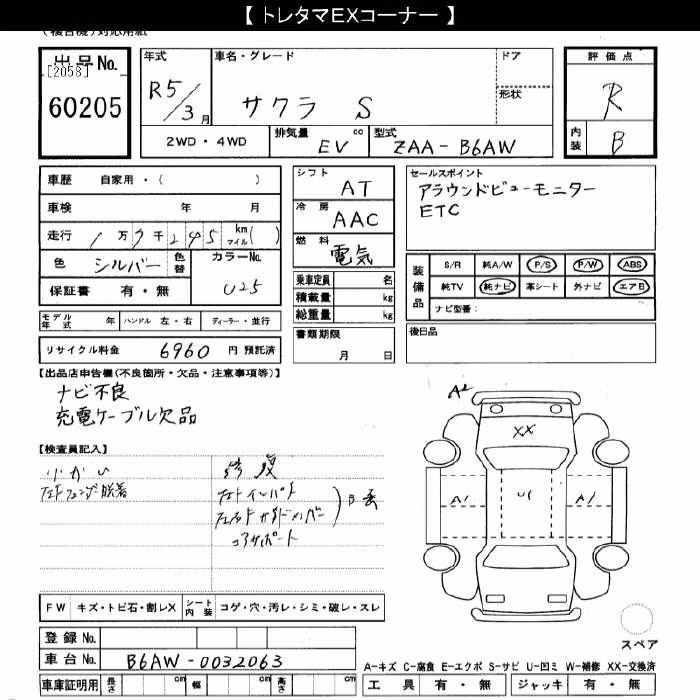 【 トレタマEXコーナー 】
出品No.
[2058]
60205
年式
R5/3月
車名・グレード
サクラ S
ドア
形状
2WD・4WD
排気量 cc
EV
型式
ZAA-B6AW
評価点
R
内装
B
車歴 自家用・( )
車検 年 月
走行 1万7千245 km マイル( )
色 シルバー 色替
カラーNo.
U25
保証書 有・無
モデル年式 年 ハンドル 左・右 ディーラー・並行
リサイクル料金 6960 円 預託済
シフト AT
冷房 AAC
燃料 電気
乗車定員 名
積載量 kg
総重量 kg
書類期限
月 日
セールスポイント
アラウンドビューモニター
ETC
装備品
S/R 純A/W P/S P/W ABS
純TV 純ナビ 革シート 外ナビ エアB
ナビ型番:
後日品
【出品店申告欄(不良箇所・欠品・注意事項等)】
ナビ不良
充電ケーブル欠品
【検査員記入】
小キズ
修復
コアサポート
A2
XX
A1
U1
A1
スペア
FW キズ・トビ石・割レX シート内装 コゲ・穴・汚レ・シミ・破レ・スレ
登録No.
車台No. B6AW-0032063
車庫証明用 長さ cm 幅 cm 高さ cm
A-キズ C-腐食 E-エクボ S-サビ U-凹ミ W-補修 XX-交換済
工具 有・無 ジャッキ 有・無